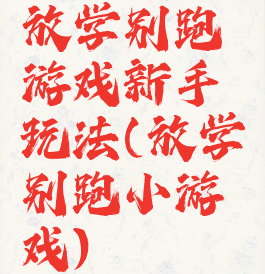 放学别跑
游戏新手
玩法(放学
别跑小游
戏)